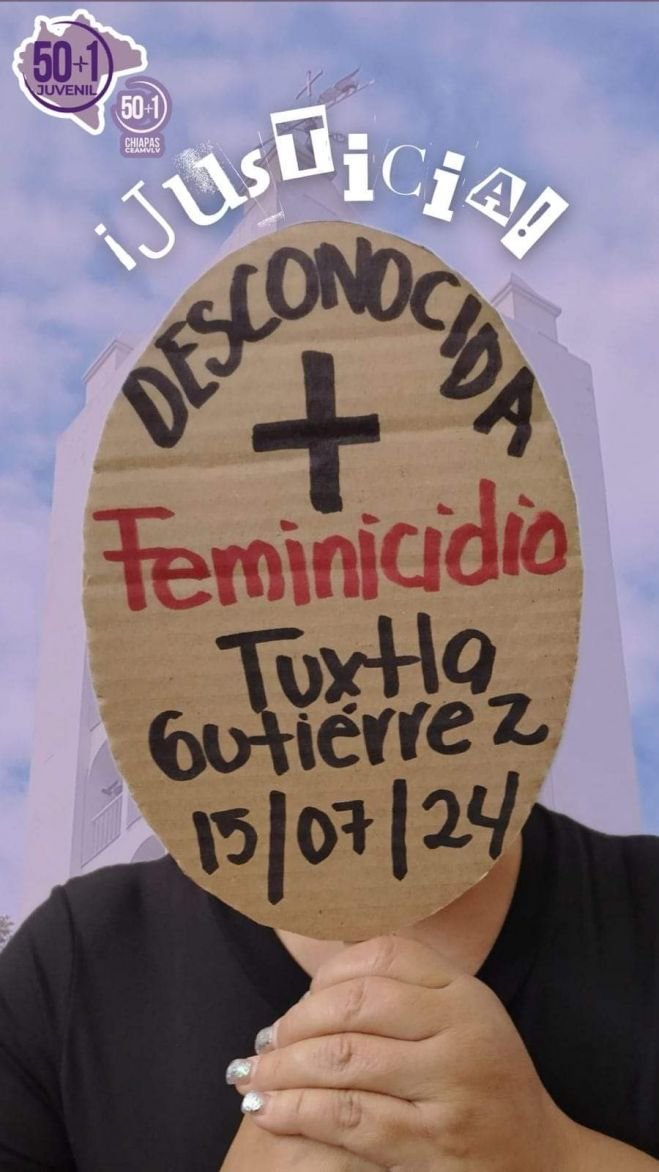 50+1
JUVENIL
50+1
CHIAPAS
CEAMVLV
¡JUSTICIA!
DESCONOCIDA
+
Feminicidio
Tuxtla
Gutiérrez
15/07/24